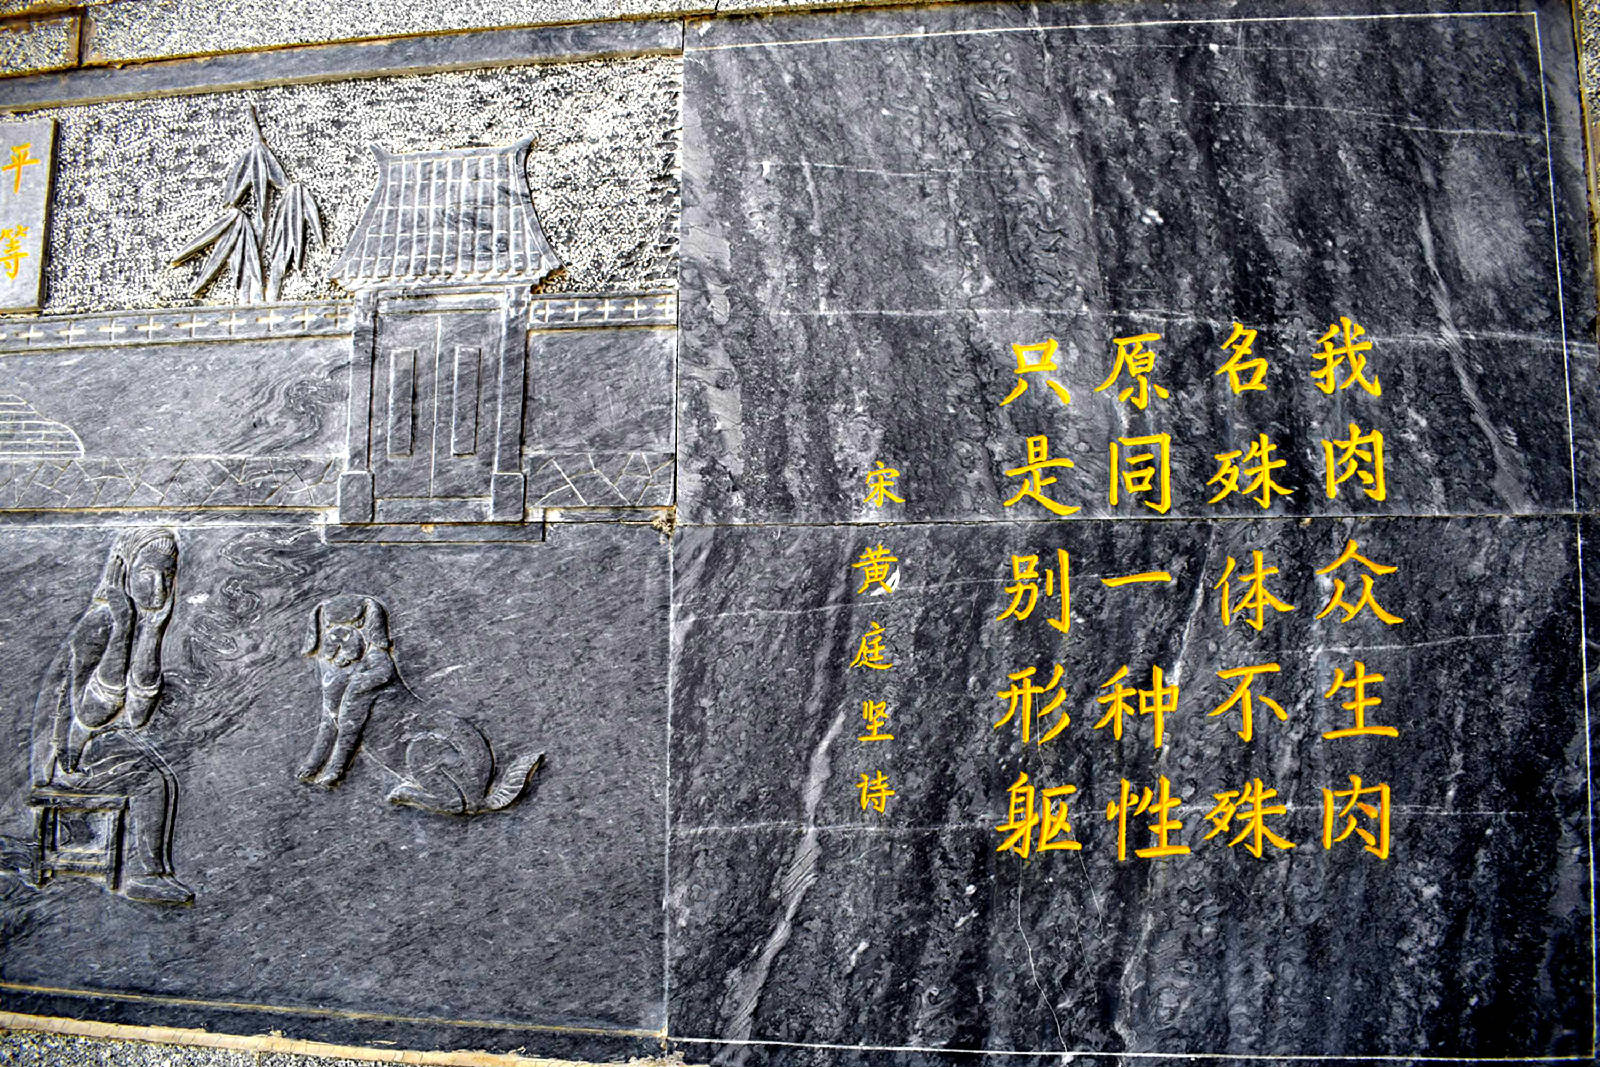 我肉众生肉
名殊体不殊
原同一种性
只是别形躯
宋黄庭坚诗
平等